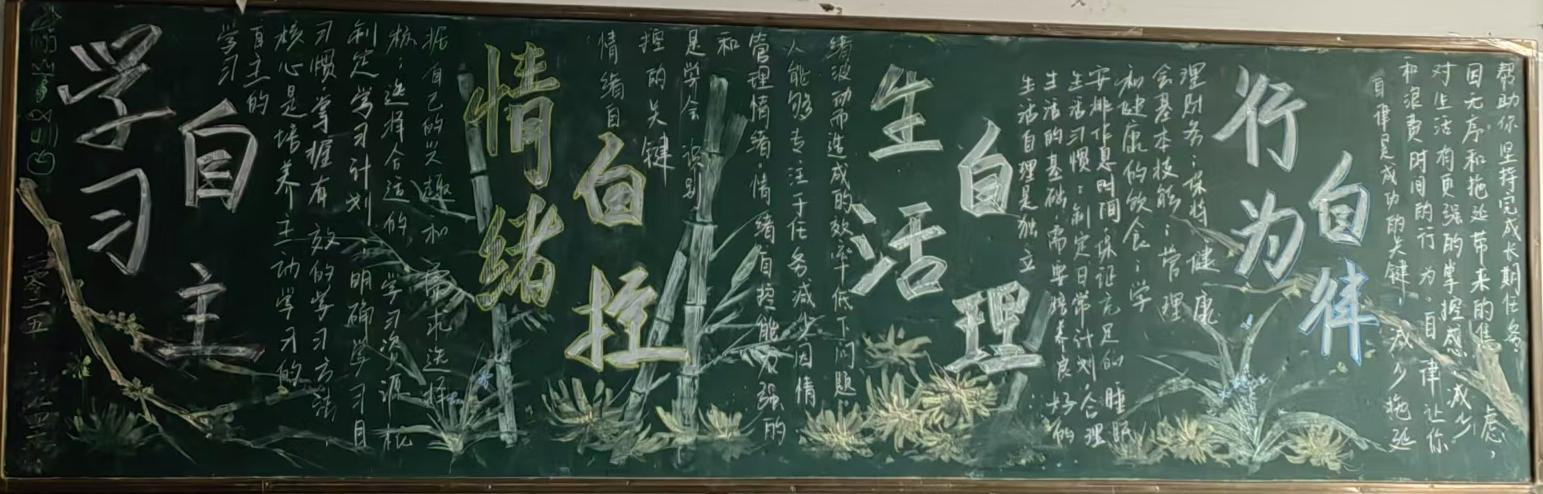 学习
自主
学习
自主的
核心是培养主动学习的
习惯.掌握有效的学习方法
制定学习计划 明确学习目
标;选择合适的学习资源
据自己的兴趣和需求选择
情绪
自控
情绪自
控的关键
是学会识别
和
管理情绪.情绪自控能力强的
人能够专注于任务减少因情
绪波动而造成的效率低下问题
生活
自理
生活自理是独立
生活的基础,需要培养良好的
生活习惯:制定日常计划,合理
安排作息时间,保证充足的睡眠
和健康的饮食;学
会基本技能:管理
理财务;保持健康
行为
自律
自律是成功的关键,减少拖延
和浪费时间的行为.自律让你
对生活有更强的掌控感.减少
因无序和拖延带来的焦虑,
帮助你坚持完成长期任务